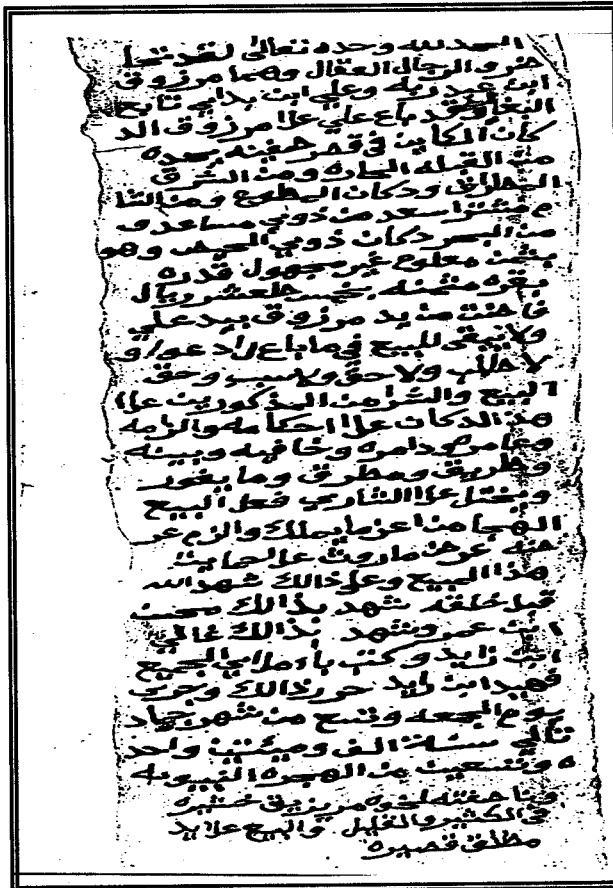 الحمد لله وحده تعالى لقد تنجا
حضر والرجال العقال وهما مرزوق
ابن عبد ربه وعلي ابن بداي تابع
فقد باع علي علا مرزوق الد
كان الكاين في قصر حفينه يحده
من القبله الجاده ومن الشرق
ودكان المطوع ومن الشا
م مشترا سعد من ذوي مساعد و
من البحر دكان ذوي الحيص وهو
بثمن معلوم غير مجهول قدره
بقره مثمنه بخمس طعشر ريال
خاضت من يد مرزوق بيد علي
ولا يبقى للبيع في ما باع لا دعوا و
لا طلب ولا حق ولا سبب وحق
البيع والشرا من المذكورين علا
هذ الدكان علا احكامه والزامه
وعامره ودامره وخافيه وبينه
وطريق ومطرق وما يغور
علا الشاري فعل البيع
من اعز ما يملك والزم عر
ضه عن ماروث علا
هذا البيع وعلا ذالك شهد الله
قبل خلقه شهد بذالك محسن
ابن عمر وشهد بذالك غالي
ابن زايد وكتب باملا الجميع
فهيد ابن زايد حرر ذالك وجرى
يوم الجمعه وتسع من شهر جماد
تالي سنة الف وميتين واحد
ه وتسعين من الهجره النبويه
لخوه مريزيق
في الكثير والقليل والبيع علا يد
مطلق قصيره